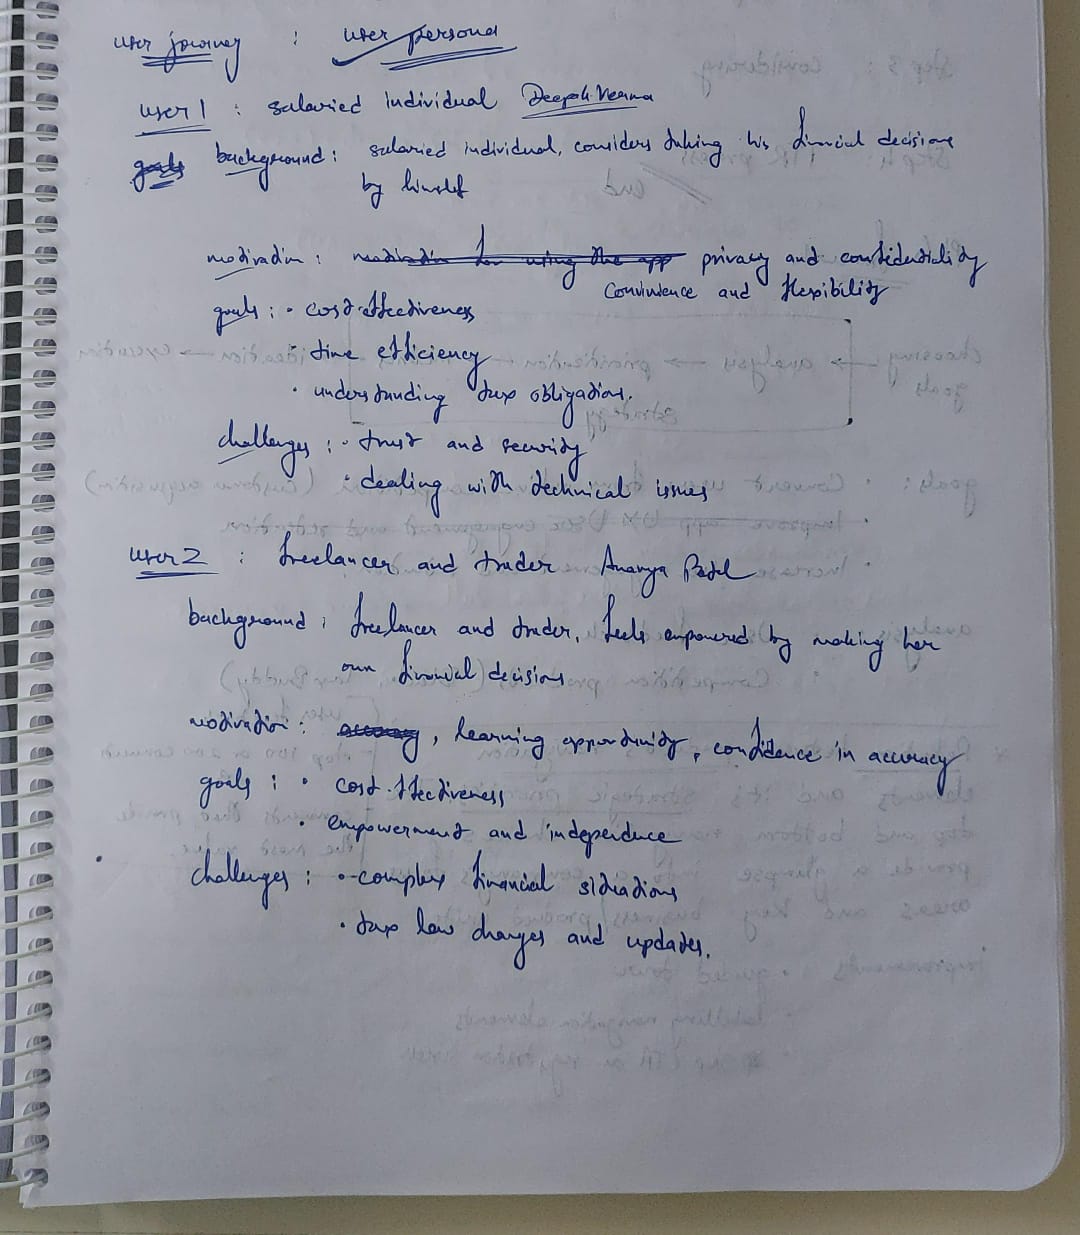 user journey : user persona
user 1 : salaried individual Deepak Verma
goals background : salaried individual, considers taking his financial decisions
by himself
motivation : motivation for using the app privacy and confidentiality
Convinience and flexibility
goals : • cost-effectiveness
• time efficiency
• understanding tax obligations.
challenges : • trust and security
• dealing with technical issues
user 2 : freelancer and trader Ananya Patel
background : freelancer and trader, feels empowered by making her
own financial decisions
motivation : accuracy, learning opportunity, confidence in accuracy
goals : • cost-effectiveness
• empowerment and independence
challenges : • complex financial situations
• tax law changes and updates.